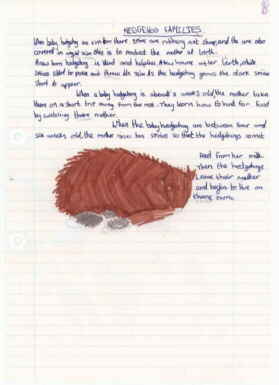 8
HEDGEHOG FAMILIES
When baby hedgehog are born there spines are not sharp, and the are also
covered in skin this is to protect the mother at birth.
A new born hedgehog is blind and helpless. A few hours after birth white
spines start to poke out through the skin. As the hedgehog grows the dark spines
start to appear.
When a baby hedgehog is about 3 weeks old, the mother take
them on a short trip away from the nest. They learn how to hunt for food
by watching there mother.
When the baby hedgehog are between four and
six weeks old, the mother raises her spines so that the hedgehogs cannot
feed from her milk.
Then the hedgehogs
leave their mother
and begins to live on
there own.